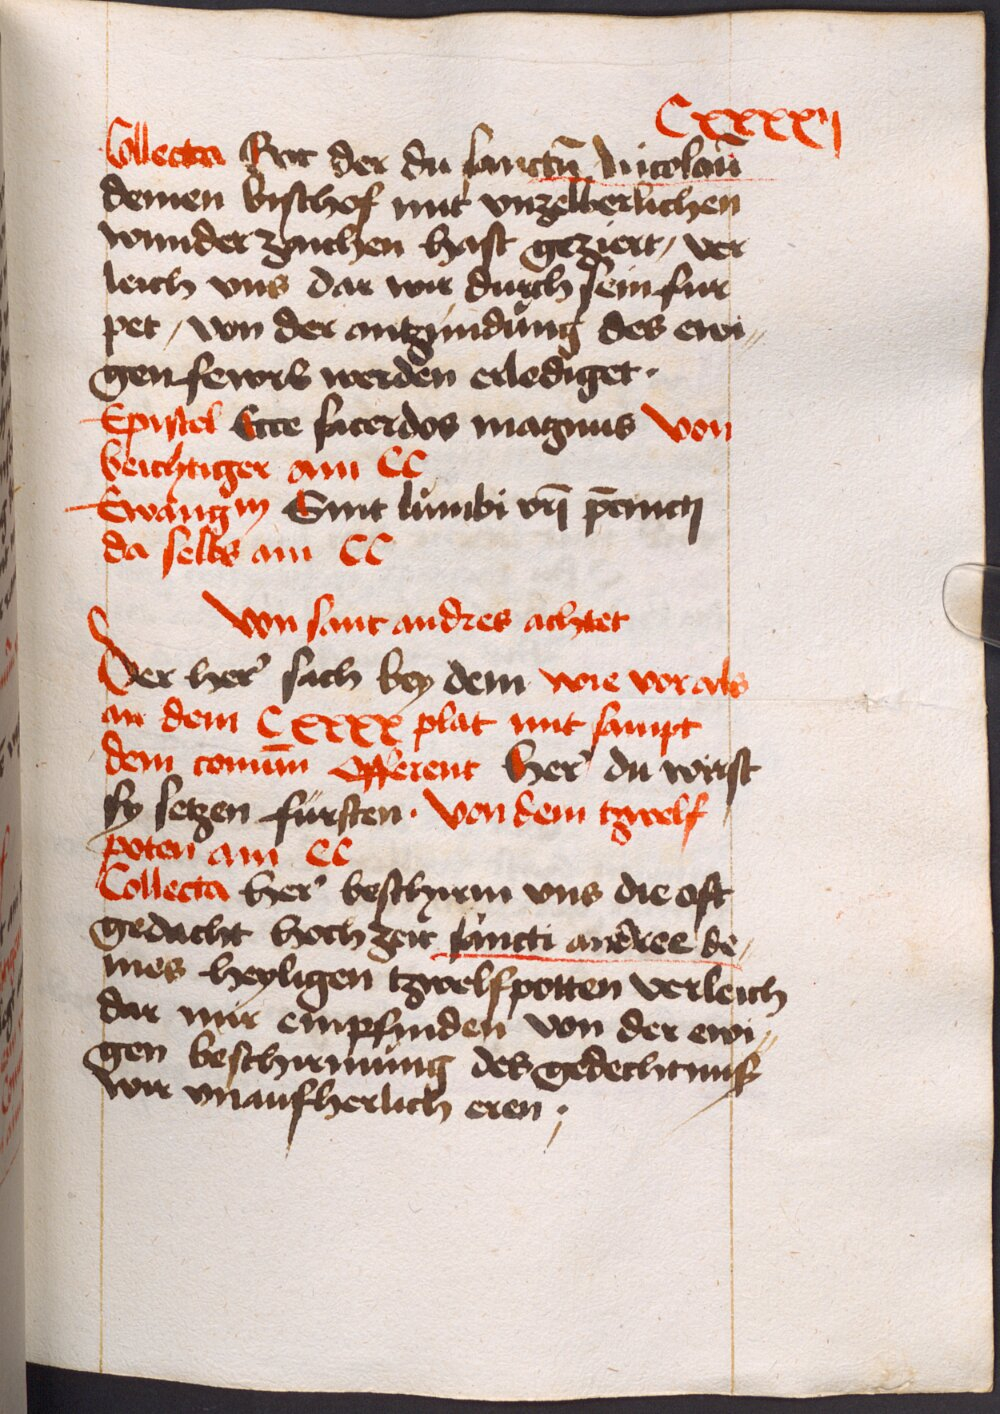 Cxxxxij
Collecta Got der du sanctū Nicolaū
deinen bischof mit vnzelberlichen
wunder zaichen hast geziert / ver
leich vns das wir durch sein fur
pet / von der antzundung des ewi„
gen fewrs werden erlediget .
Epistel Ecce sacerdos magnus von
beichtiger am CC
Ewangm Sint lumbi vrī p̄cincti
da selbs am CC
Von sant andres achtet
Der her' sach bey dem wie vor als
an dem Cxxxx plat mit sampt
dem comūm Offerent her' du wirst
sy setzen fürsten . Von dem tzwelf
poten am CC
Collecta her' beschirm vns die oft
gedacht hochzeit sancti andree de„
ines heyligen tzwelfpotten verleich
das mir empfinden von der ewi„
gen beschirmung des gedechtnuß
wir vnaufherlich eren ;